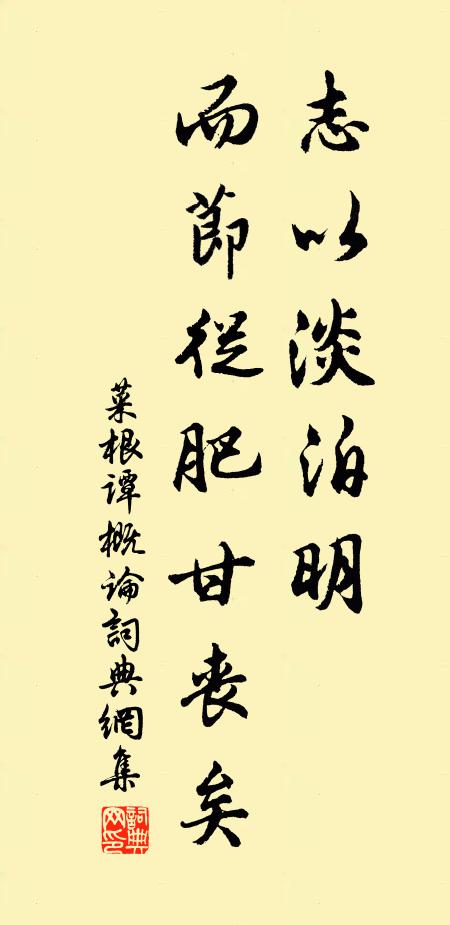 志以淡泊明
而節從肥甘喪矣
菜根谭概论詞典網集
詞典網印